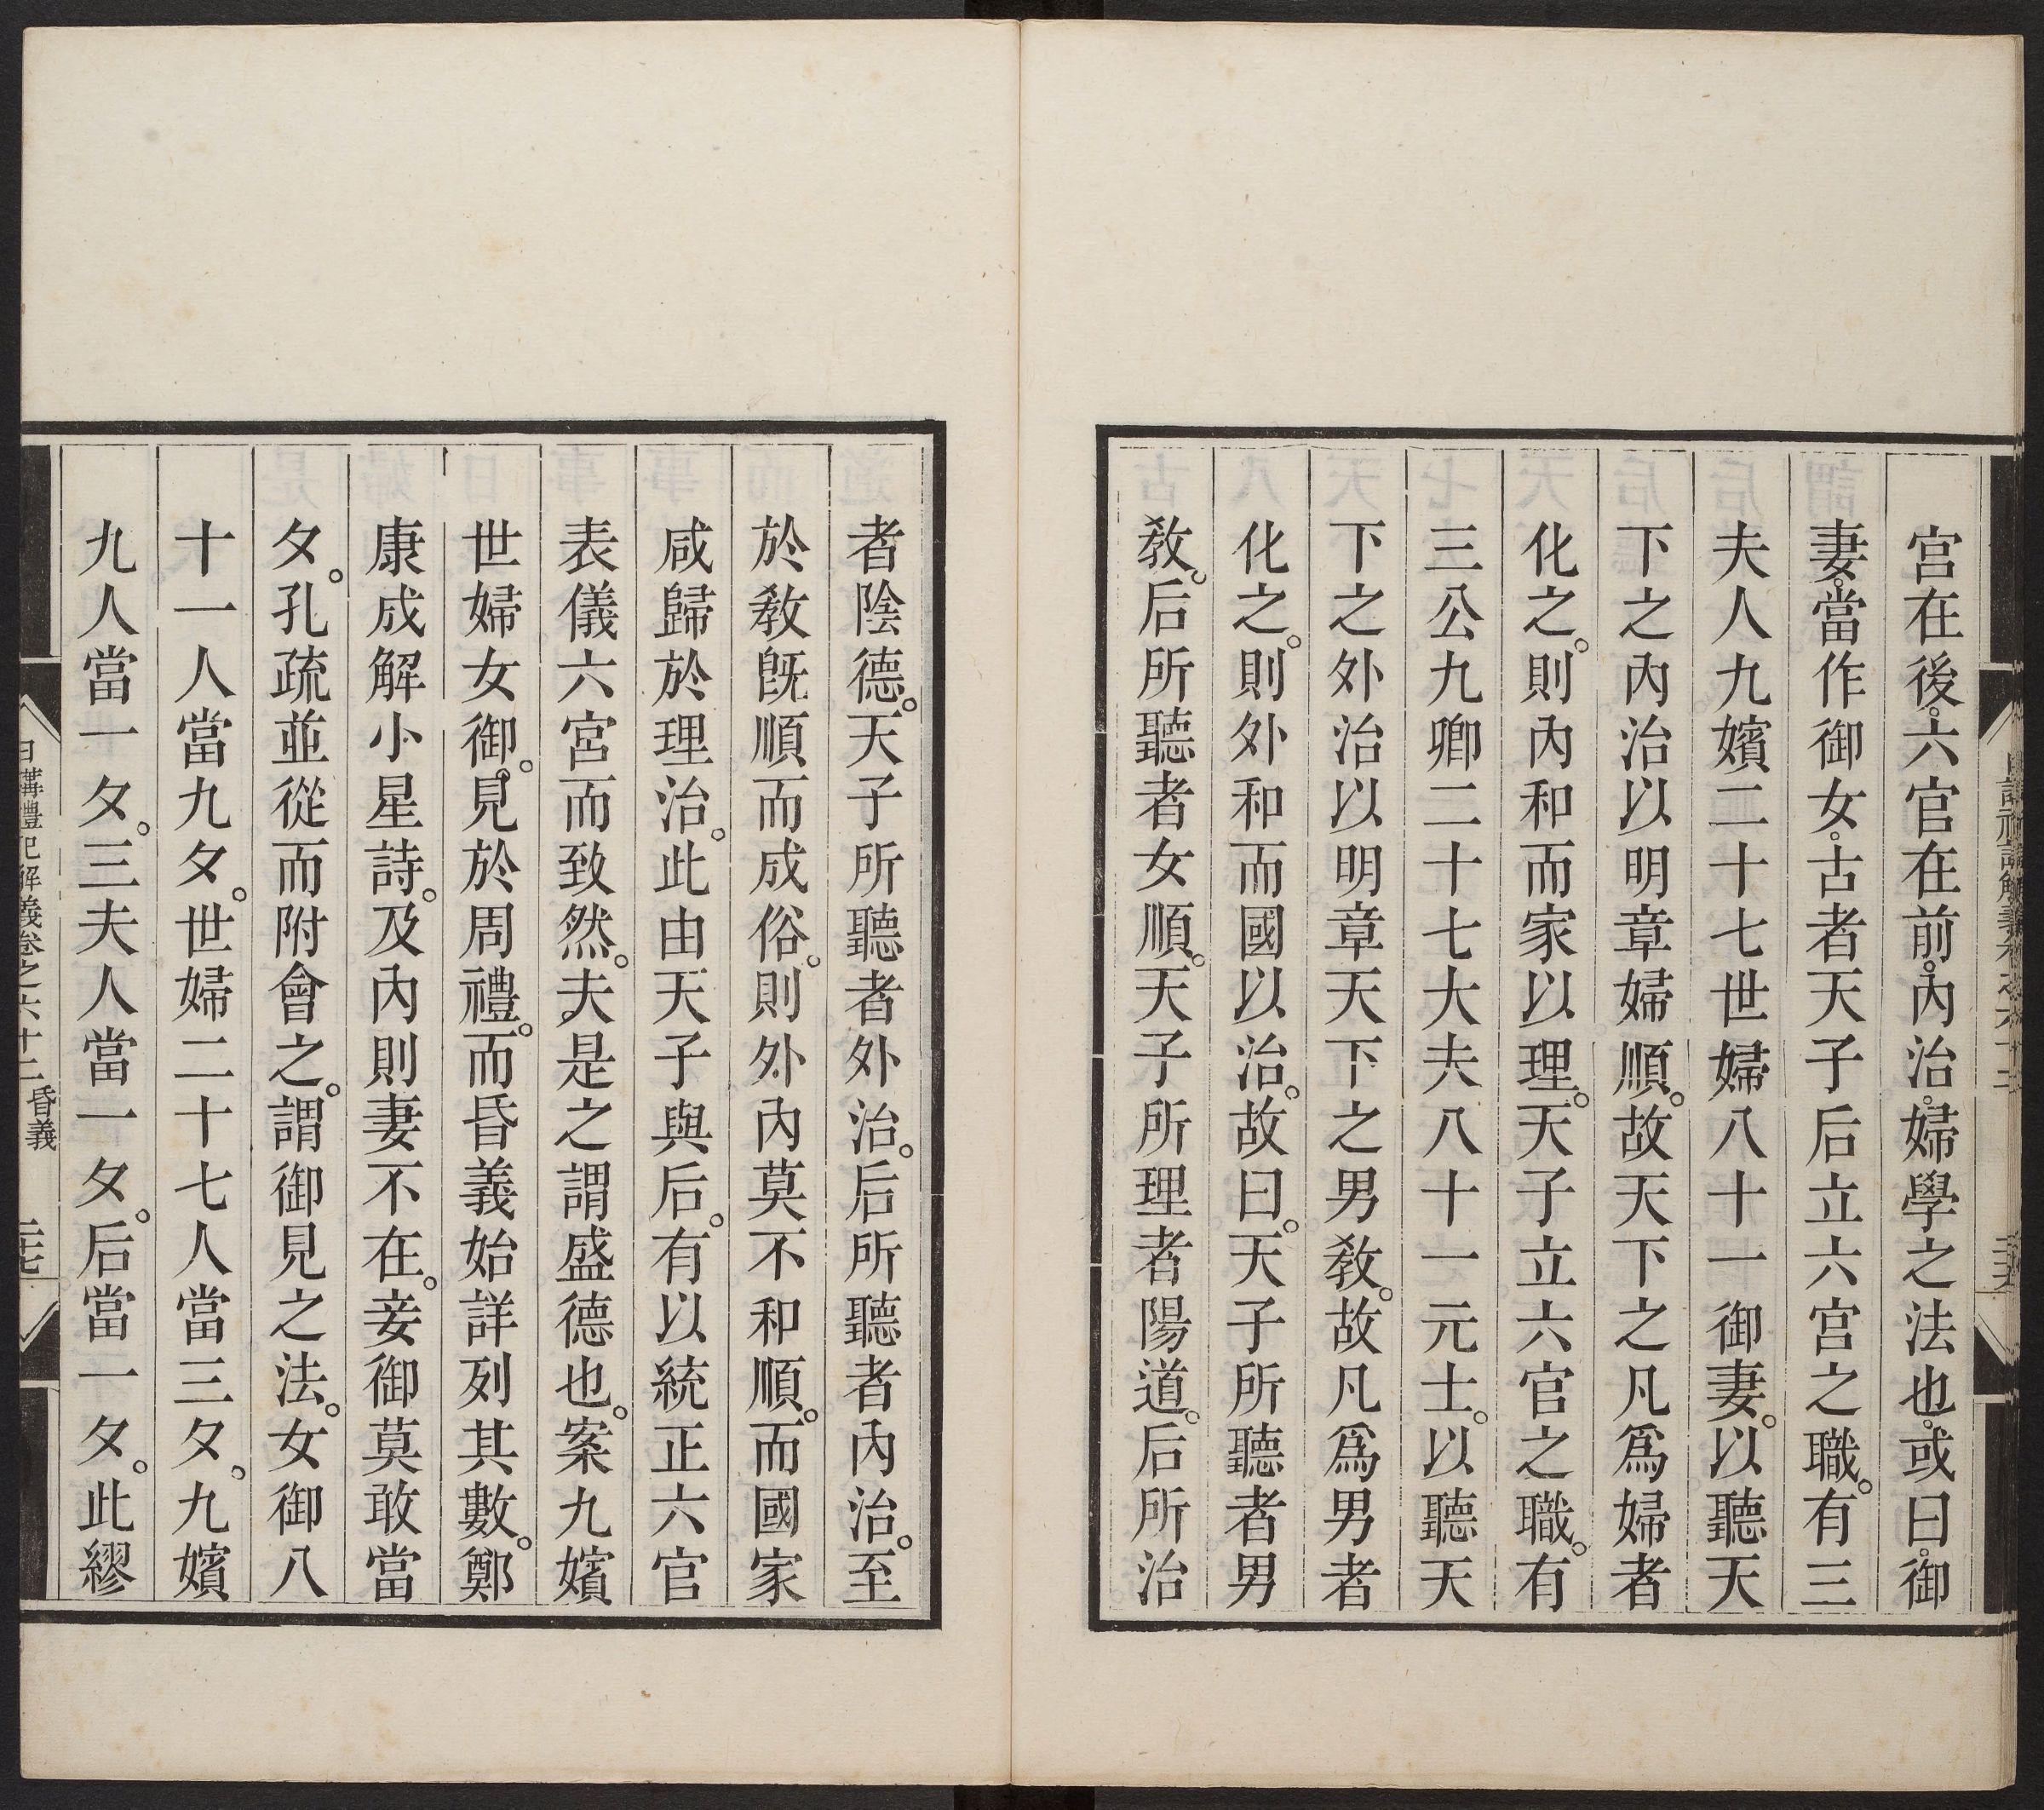 宮在後。六官在前。內治。婦學之法也。或曰。御
妻。當作御女。古者天子后立六宮之職。有三
夫人九嬪二十七世婦八十一御妻。以聽天
下之內治以明章婦順。故天下之凡爲婦者
化之。則內和而家以理。天子立六官之職。有
三公九卿二十七大夫八十一元士。以聽天
下之外治以明章天下之男敎。故凡爲男者
化之。則外和而國以治。故曰。天子所聽者男
敎。后所聽者女順。天子所理者陽道。后所治
者陰德。天子所聽者外治。后所聽者內治。至
於敎旣順而成俗。則外內莫不和順。而國家
咸歸於理治。此由天子與后。有以統正六官
表儀六宮而致然。夫是之謂盛德也。案九嬪
世婦女御。見於周禮。而昏義始詳列其數。鄭
康成解小星詩。及內則妻不在。妾御莫敢當
夕。孔疏並從而附會之。謂御見之法。女御八
十一人當九夕。世婦二十七人當三夕。九嬪
九人當一夕。三夫人當一夕。后當一夕。此繆
日講禮記解義卷之六十二 昏義